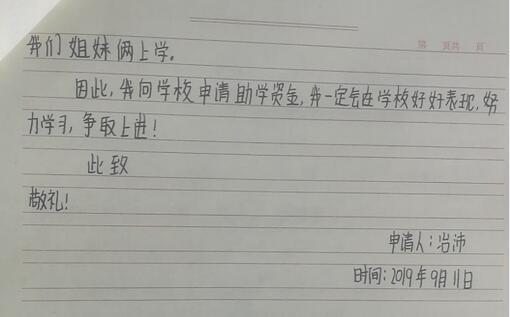 第 页共 页
我们姐妹俩上学。
因此,我向学校申请助学资金,我一定会在学校好好表现,努
力学习,争取上进!
此致
敬礼!
申请人:冶沛
时间:2019年9月11日